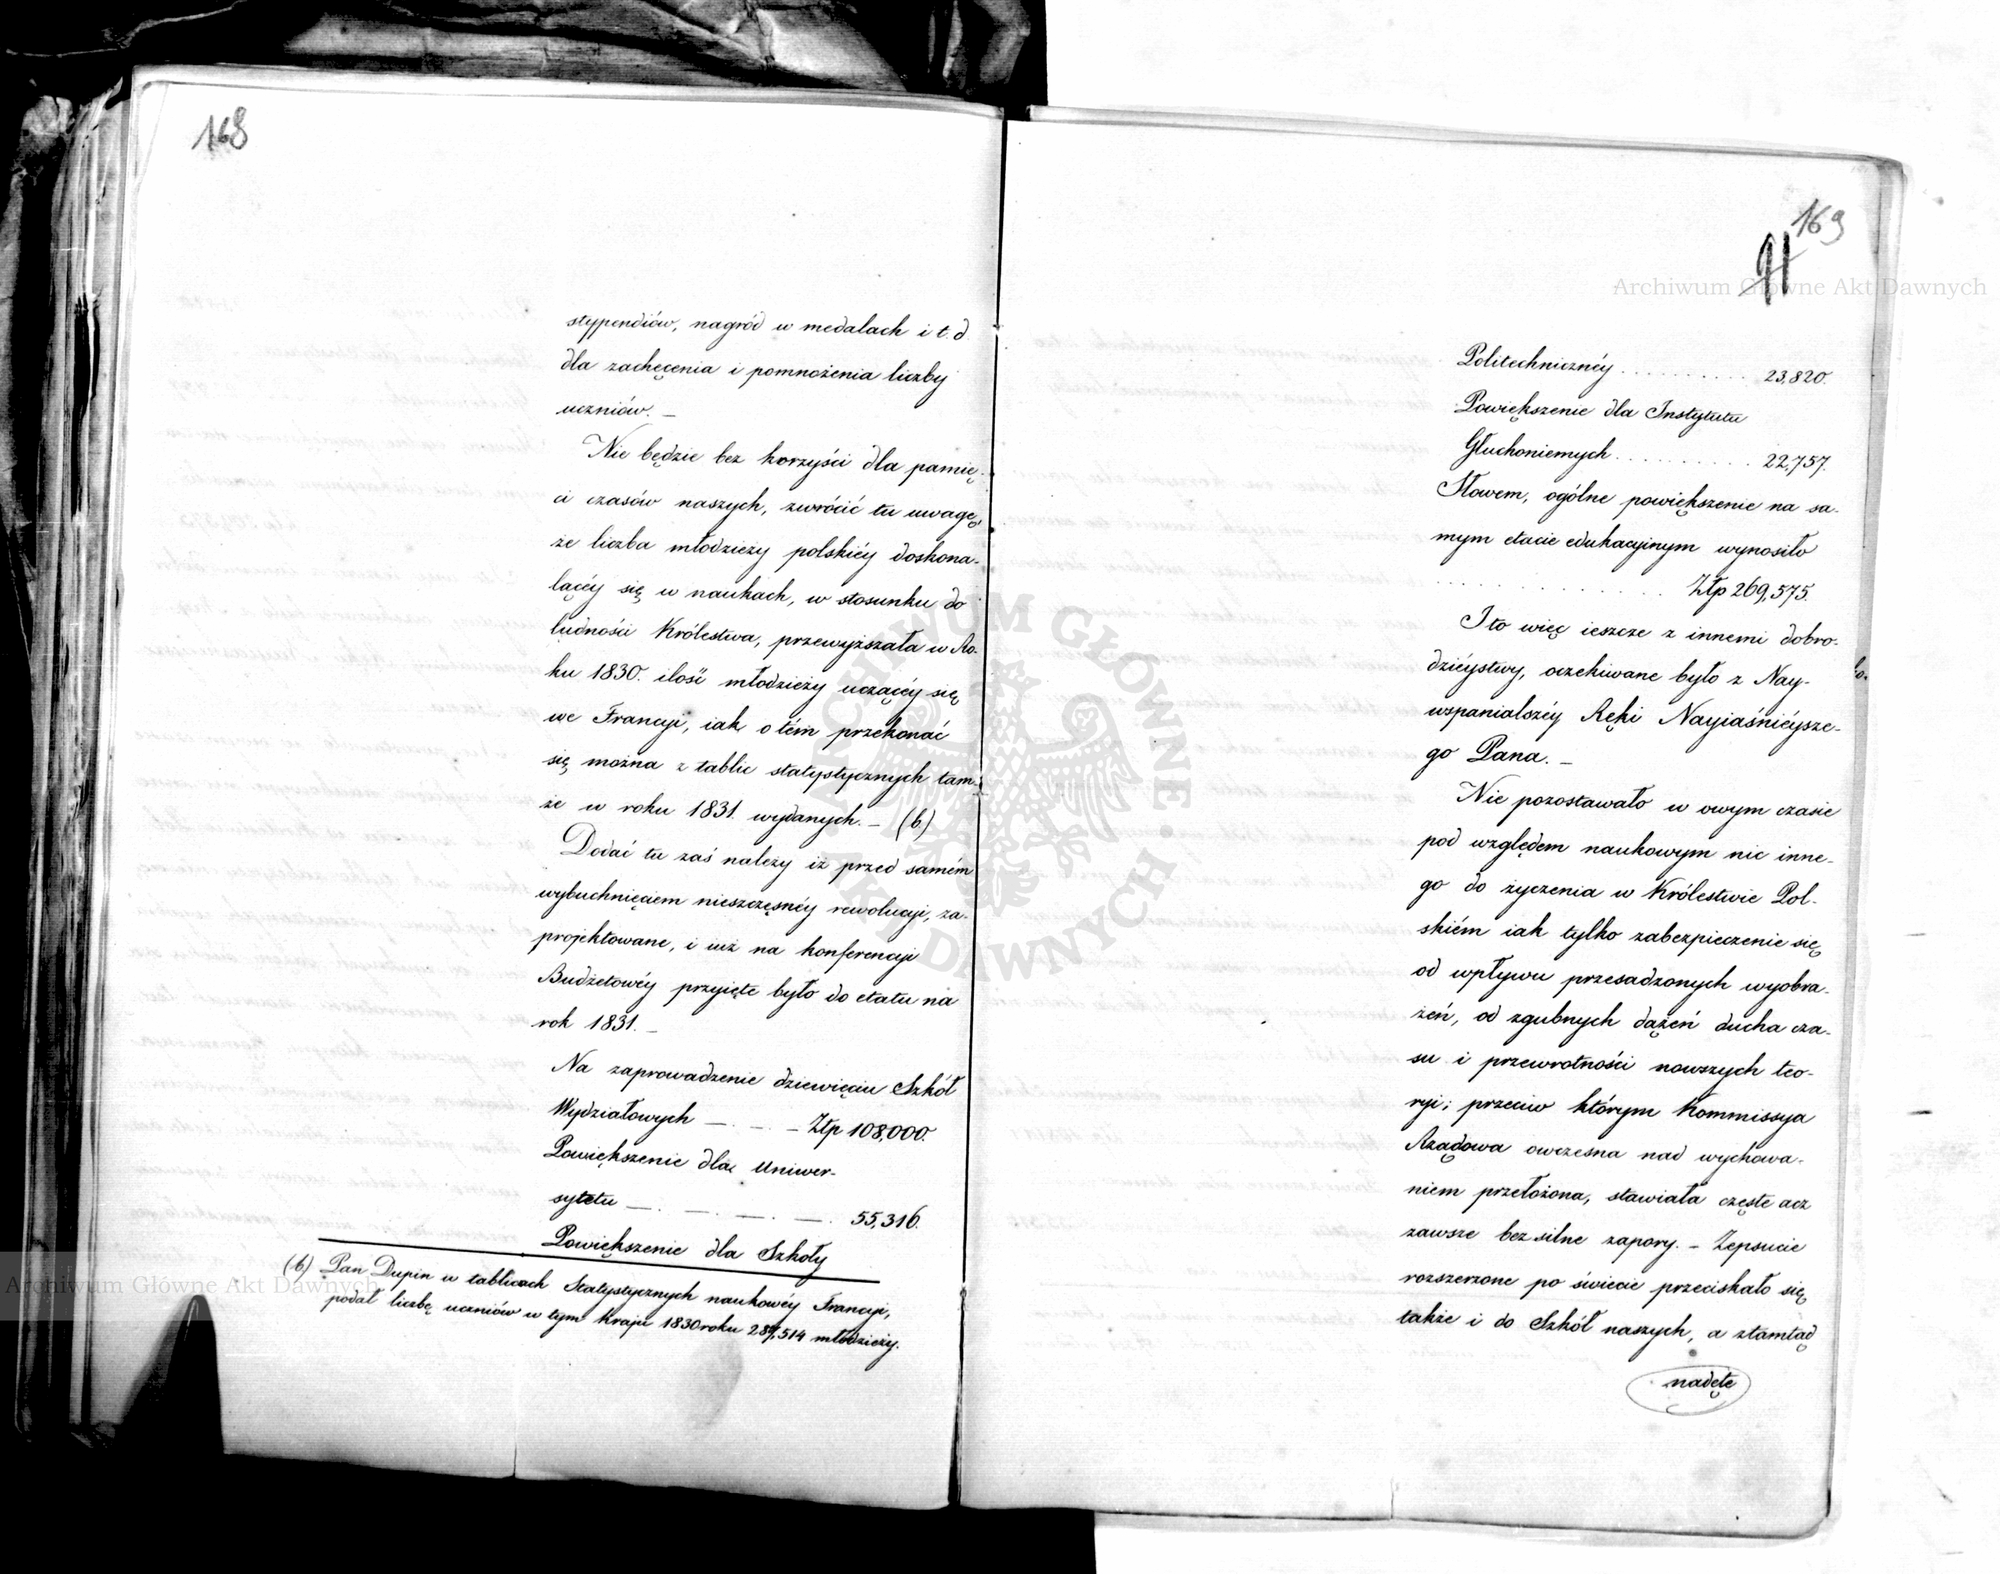 168
stypendiów, nagród w medalach i t. d.
dla zachęcenia i pomnożenia liczby
uczniów. —
Nie będzie bez korzyści dla pamię-
ci czasów naszych, zwrócić tu uwagę,
że liczba młodzieży polskiéy doskona-
lącéy się w naukach, w stosunku do
ludności Królestwa, przewyższała w Ro-
ku 1830. ilość młodzieży uczącéy się
we Francyi, iak o tém przekonać
się można z tablic statystycznych tam-
że w roku 1831. wydanych. — (b.)
Dodać tu zaś należy iż przed samém
wybuchnięciem nieszczęsnéy rewolucyi, za-
projektowane, i iuż na konferencyi
Budżetowéy przyięte było do etatu na
rok 1831. —
Na zaprowadzenie dziewięciu Szkół
Wydziałowych — . — . — Złp 108,000.
Powiększenie dla Uniwer-
sytetu — . — . — . — . 55,316.
Powiększenie dla Szkoły
(b) Pan Dupin w tablicach Statystycznych naukowéy Francyi,
podał liczbę uczniów w tym Kraju 1830 roku 287,514 młodzieży.
169
91
Politechnicznéy . . . . . . . . . . 23,820.
Powiększenie dla Instytutu
Głuchoniemych . . . . . . . . . . 22,757.
Słowem, ogólne powiększenie na sa-
mym etacie edukacyjnym wynosiło
. . . . . . . . . . . . . . Złp 269,575.
I to więc ieszcze z innemi dobro-
dziéystwy, oczekiwane było z Nay-
wspanialszéy Ręki Nayiaśniéysze-
go Pana. —
Nie pozostawało w owym czasie
pod względem naukowym nic inne-
go do życzenia w Królestwie Pol-
skiém iak tylko zabezpieczenie się
od wpływu przesadzonych wyobra-
żeń, od zgubnych dążeń ducha cza-
su i przewrotności nowszych teo-
ryi; przeciw którym Kommissya
Rządowa owczesna nad wychowa-
niem przełożona, stawiała częste acz
zawsze bezsilne zapory. — Zepsucie
rozszerzone po świecie przeciskało się
także i do Szkół naszych, a ztamtąd
nadęte
Archiwum Główne Akt Dawnych
Archiwum Główne Akt Dawnych
ARCHIWUM GŁÓWNE AKT DAWNYCH